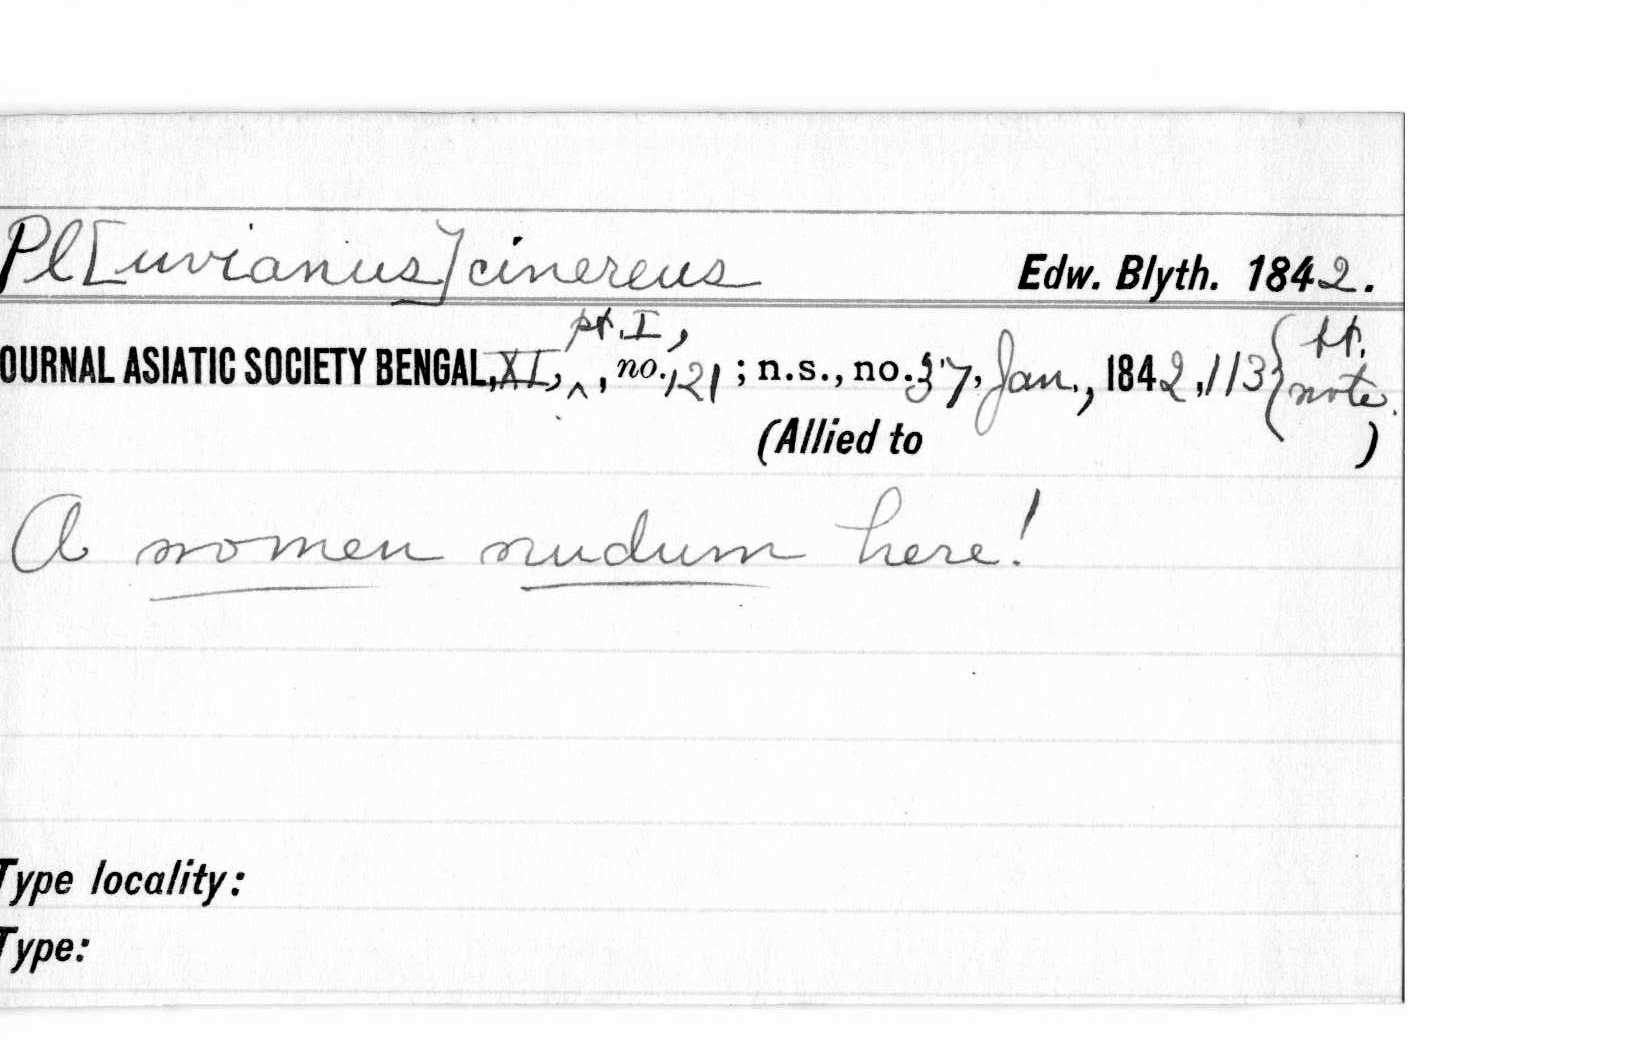 Pl[uvianus] cinereus Edw. Blyth. 1842.
pt. I,
OURNAL ASIATIC SOCIETY BENGAL, XI, ^, no. 121 ; n.s., no. 37, Jan., 1842, 113 { ft. note.
(Allied to )
A nomen nudum here!
Type locality:
Type: